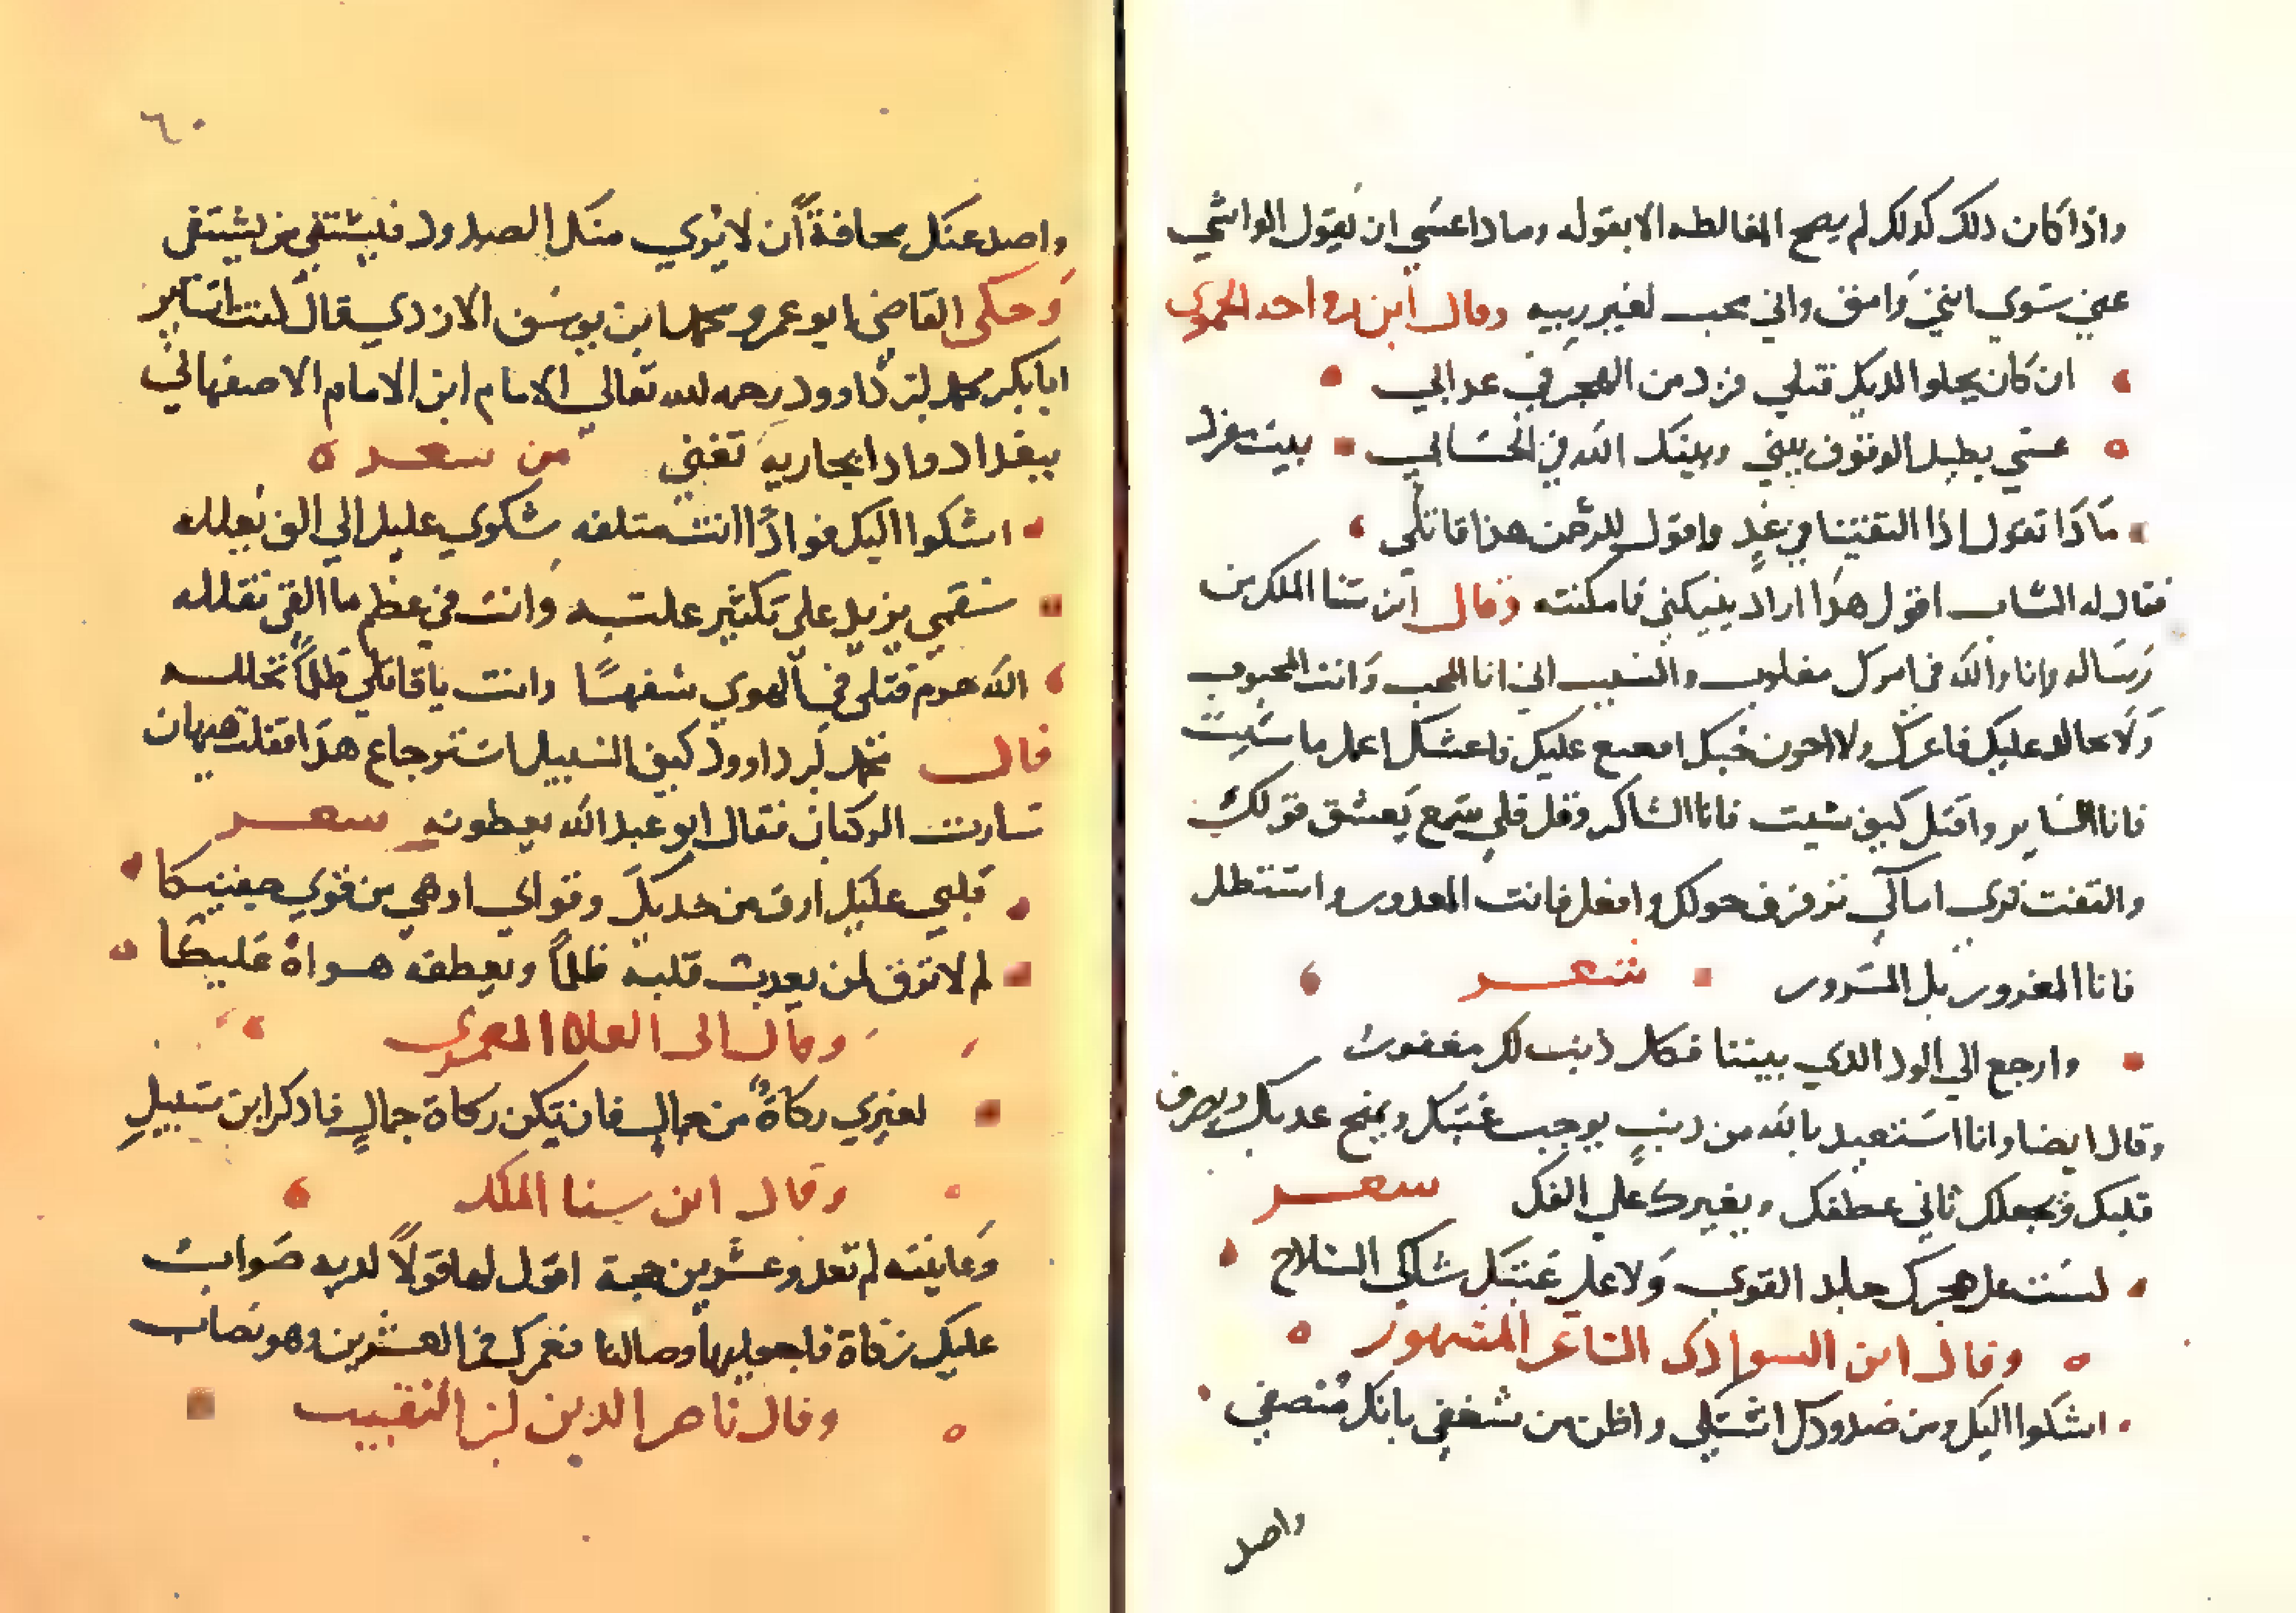 واذا كان ذلك كدلك لم يصح المغالطه الا بقوله وماذا عسي ان يقول الواشي
عني سوي انني وامق واني محب لغير ريبه وقال ابن احد الحموي
ان كان يحلوا لديك قتلي فزد من الهجر في عدابي
عسي يطيل الوقوف بيني وبينك الله في الحساب بيت مفرد
ماذا تقول اذا التقتينا في غد واقول للرحمن هذا قاتلي
فقال له الشاب اقول هذا اراد ينيكني فامكنته وقال ابن سنا الملك من
رساله وانا والله في امرك مغلوب والسبب اني انا المحب وانت المحبوب
ولا محاله عليك فاعرك ولا اخون حبك عليك فاعشك اعمل ما شيت
فانا الصابر واقتل كيف شيت فانا الشاكر وقل قلبي سمع يعشق قولك
والتفت تري امالي ترفرف حولك وافعل فانت المعدور واستطل
فانا المغرور بل المسرور شعر
وارجع الي الود الدي بيننا فكل دنب لك مغفور
وقال ايضا وانا استعيد بالله من دنب يوجب عتبك ويمنح عدبك ويصرف
قلبك ويجعلك ثاني عطفك ويغيرك علي الفك سعر
لست علي هجرك جلد القوي ولا علي عتبك شاكي السلاح
وقال ابن السوادك الشاعر المشهور
اشكوا اليك ومن صدودك اشتكي واظن من شغفي بانك منصفي
واصد
٦٠
واصد عنك محافة ان لا يري منك الصدود فيشتفي من يشتفي
وحكي القاضي ابو عمرو محمد ابن يوسف الازدي قال كنت اساير
ابا بكر محمد بن داوود رحمه الله تعالي الامام ابن الامام الاصفهاني
ببغداد وادا بجاريه تغني من سعر
اشكوا اليك فوادًا انت متلفه شكوي عليل الي الف يعلله
سقمي يزيد علي تكثير علته وانت في عظم ما القي تقلله
الله حرم قتلي في الهوي سفهًا وانت يا قاتلي ظلمًا تحلله
قال محمد بن داوود كيف السبيل استرجاع هذا فقلت هيهات
سارت الركبان فقال ابو عبد الله نفطويه سعر
قلبي عليك ارق من خديك وقواي اوهي من قوي جفنيكا
لم لا ترق لمن يعدب قلبه ظلمًا ويعطفه هواه عليكا
وقال ابي العلا المعري
لغيري زكاة من جمال فان تكن زكاة جمال فادكر ابن سبيل
وقال ابن سنا الملك
وغانية لم تعد وعشرين حجة اقول لها قولًا لديه صواب
عليك زكاة فاجعليها وصالنا فعمرك في العشرين وهو نصاب
وقال ناصر الدين بن النقيب